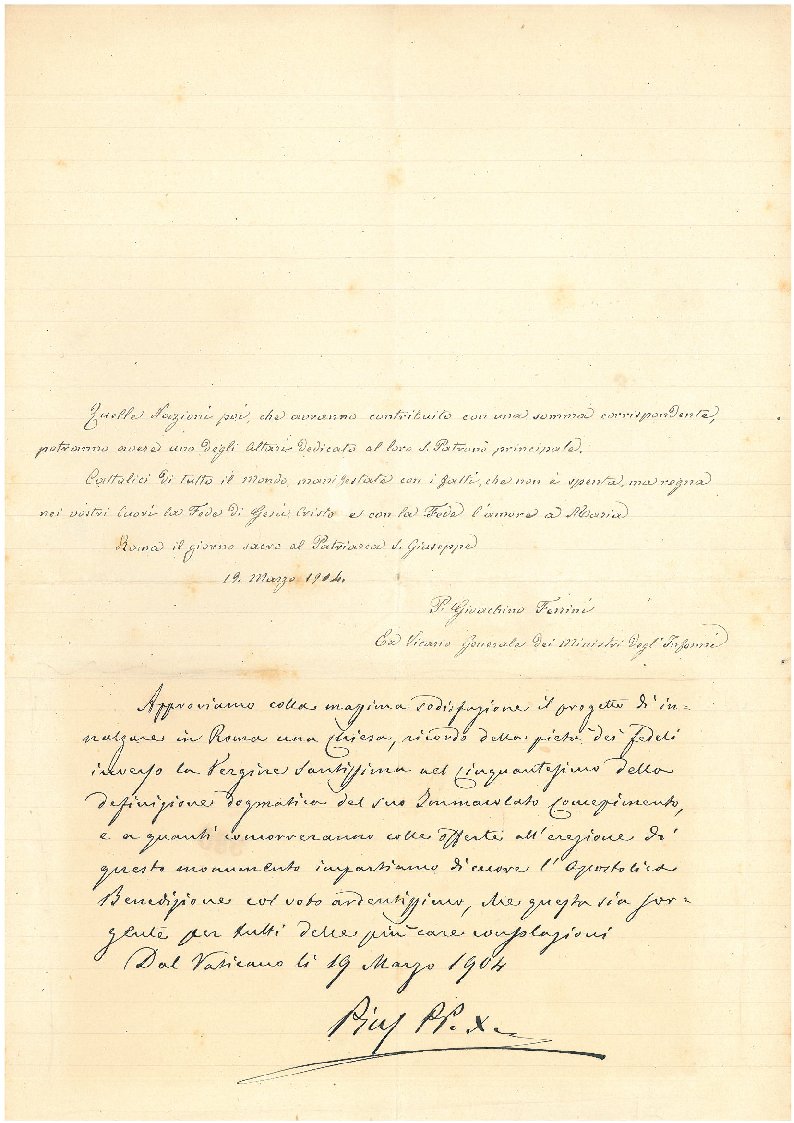 Quelle Nazioni poi, che avranno contribuito con una somma corrispondente,
potranno avere uno degli Altari dedicato al loro S. Patrono principale.
Cattolici di tutto il mondo, manifestate con i fatti, che non è spenta, ma regna
nei vostri Cuori la Fede di Gesù Cristo e con la Fede l'amore a Maria
Roma il giorno sacro al Patriarca S. Giuseppe
19. Marzo 1904.
P. Gioachino Ferrini
Ex Vicario Generale dei Ministri degl'Infermi
Approviamo colla massima sodisfazione il progetto di in-
nalzare in Roma una Chiesa, ricordo della pietà dei fedeli
inverso la Vergine Santissima nel Cinquantesimo della
definizione dogmatica del suo Immacolato Concepimento,
e a quanti concorreranno colle offerte all'erezione di
questo monumento impartiamo di cuore l'Apostolica
Benedizione col voto ardentissimo, che questa sia sor-
gente per tutti delle più care consolazioni
Dal Vaticano li 19 Marzo 1904
Pius PP. X.